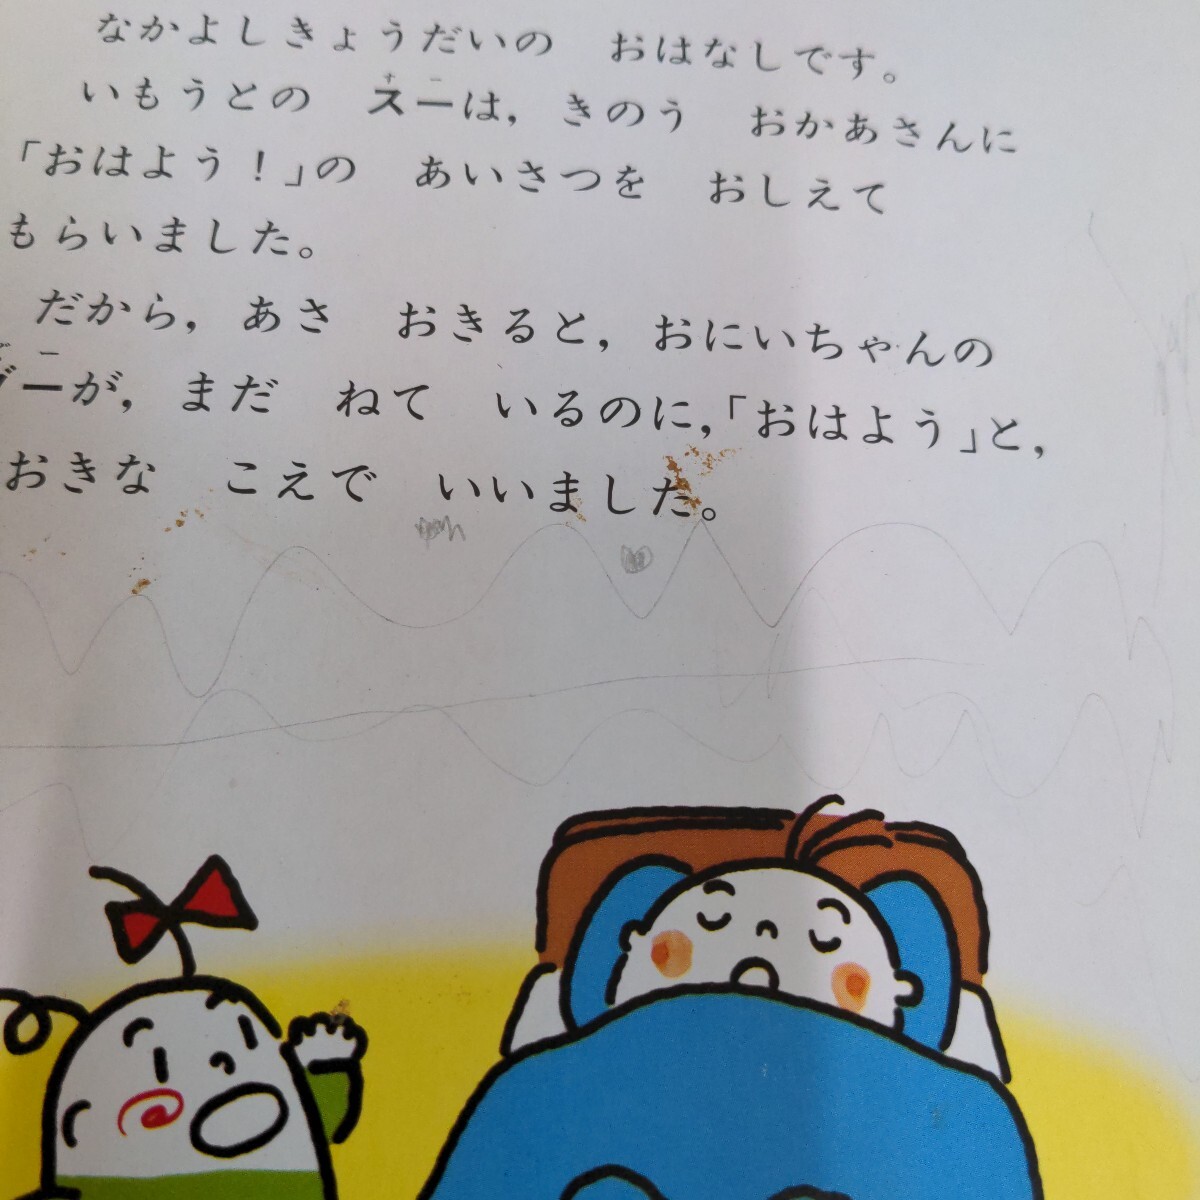 なかよしきょうだいの　おはなしです。
いもうとの　スーは，きのう　おかあさんに
「おはよう！」の　あいさつを　おしえて
もらいました。
だから，あさ　おきると，おにいちゃんの
グーが，まだ　ねて　いるのに，「おはよう」と，
おきな　こえで　いいました。